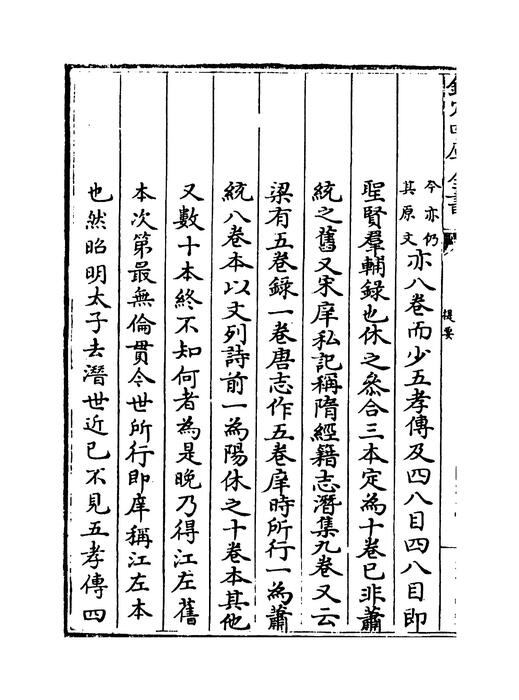 欽定四庫全書
提要
今亦仍
其原文
亦八卷而少五孝傳及四八目四八目即
聖賢羣輔録也休之叅合三本定為十卷已非蕭
統之舊又宋庠私記稱隋經籍志潛集九卷又云
梁有五卷録一卷唐志作五卷庠時所行一為蕭
統八卷本以文列詩前一為陽休之十卷本其他
又數十本終不知何者為是晚乃得江左舊
本次第最無倫貫今世所行即庠稱江左本
也然昭明太子去潛世近已不見五孝傳四